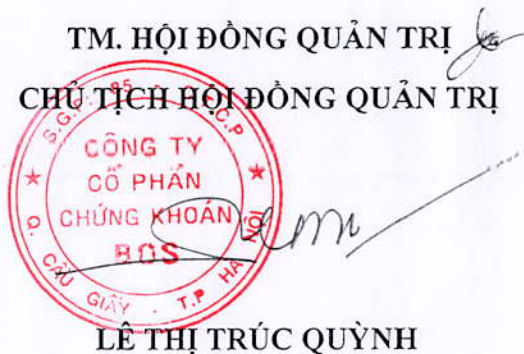 TM. HỘI ĐỒNG QUẢN TRỊ
CHỦ TỊCH HỘI ĐỒNG QUẢN TRỊ
CÔNG TY
CỔ PHẦN
CHỨNG KHOÁN
BOS
Q. CẦU GIẤY - T.P HÀ NỘI
LÊ THỊ TRÚC QUỲNH